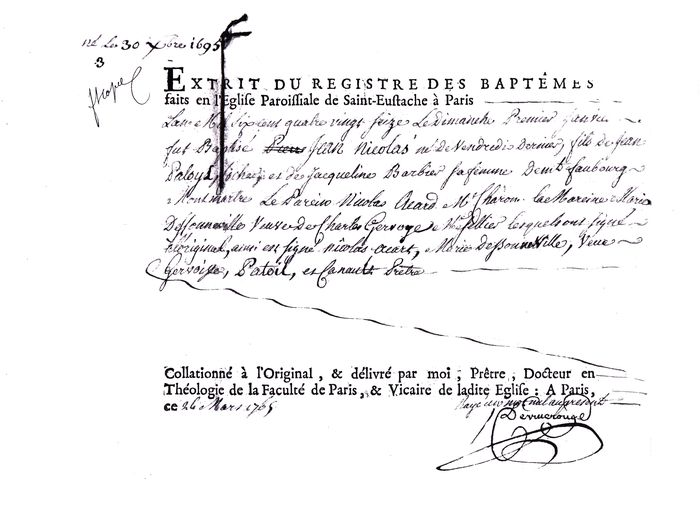 né le 30 xbre 1695
3
EXTRIT DU REGISTRE DES BAPTÊMES
faits en l'Eglise Paroissiale de Saint-Eustache à Paris
L'an Mil Six cent quatre vingt seize Le dimanche Premier Janvier
fut Baptisé Jean Nicolas né de Vendredi Dernier, fils de Jean
et de Jacqueline Barbier sa femme Demt faubourg
Montmartre Le Parein Nicolas Acard Md La Mareine Marie
Dessonneville Veuve de Charles Gervoise Md lesquels ont signé
à l'original, ainsi est signé nicolas acart, Marie dessonneville, Veuve
Gervoise, Patoil, et Canault Prêtre
Collationné à l'Original, & délivré par moi, Prêtre, Docteur en
Théologie de la Faculté de Paris, & Vicaire de ladite Eglise : A Paris,
ce 26 Mars 1765